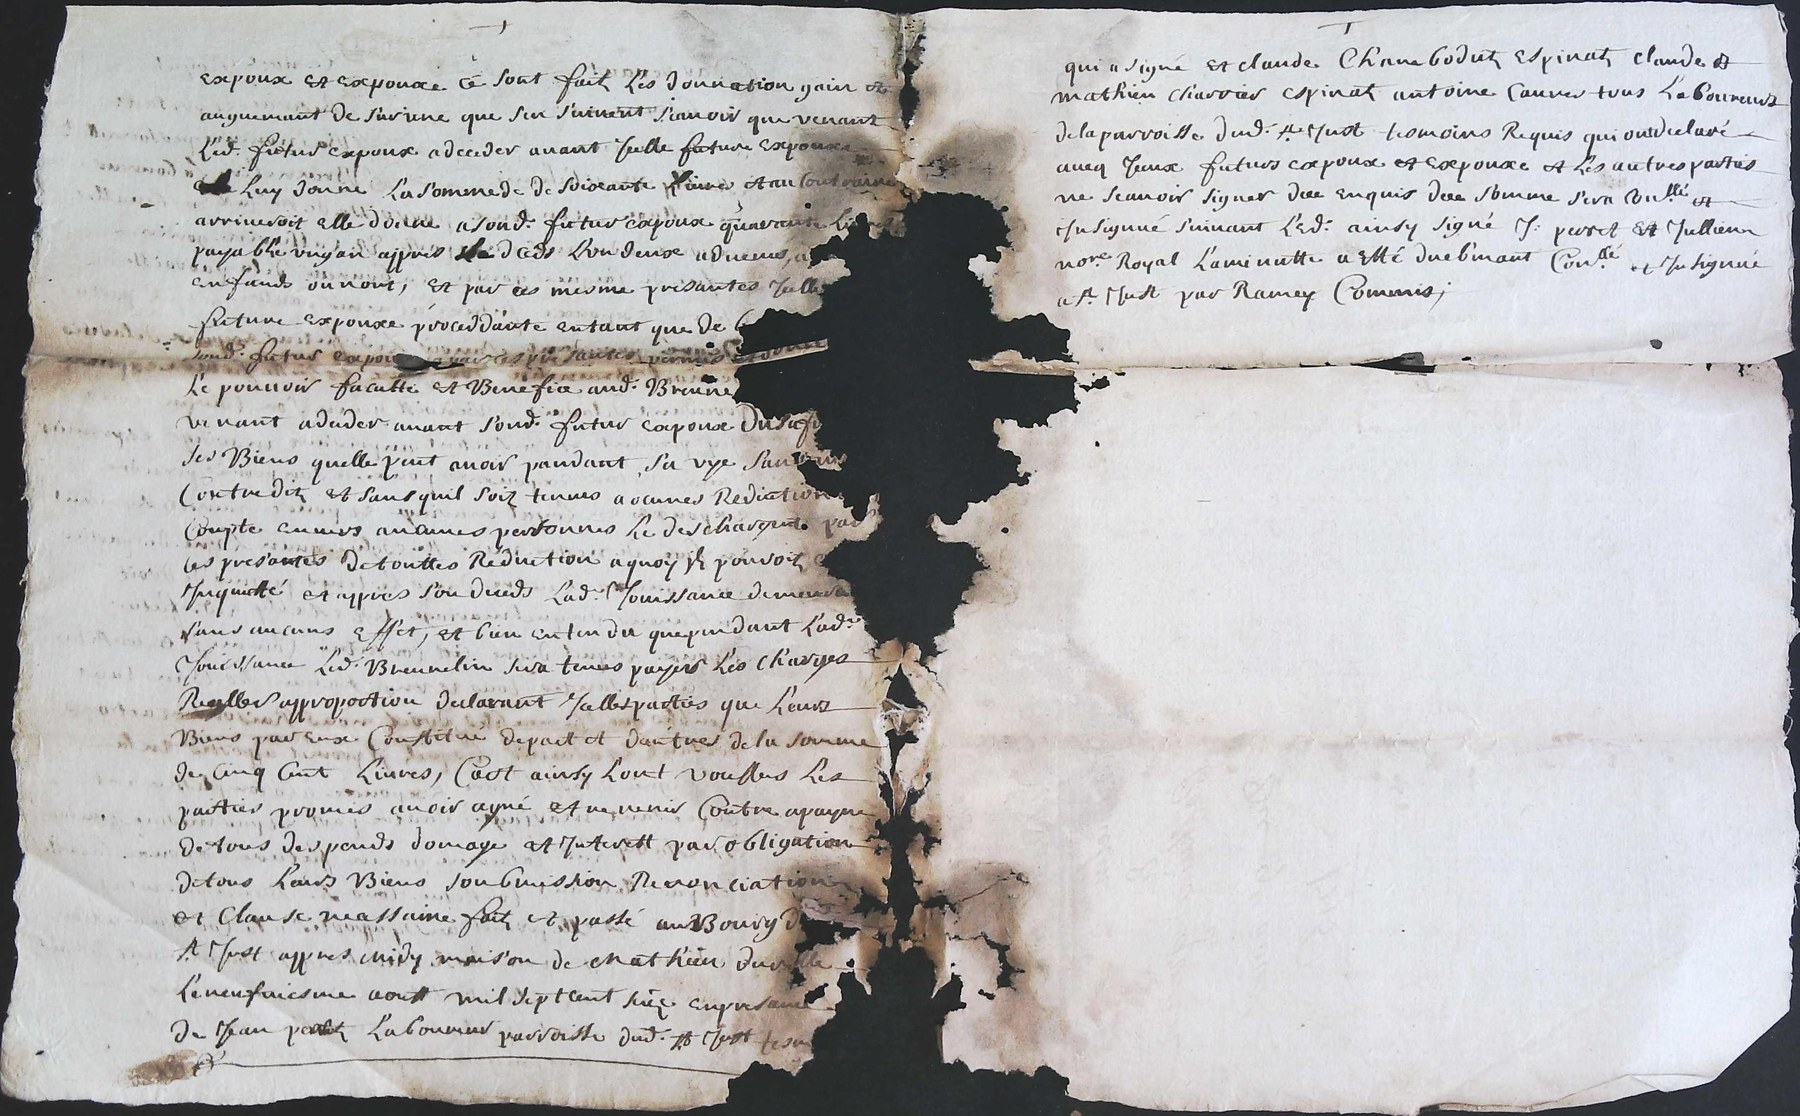 expoux et expouxe Ce sont fait les donnation gain et
augmant de survye que sen suivent scavoir que venant
Led. futur expoux a decceder avant Jcelle future expouxe
Luy donne La somme de de soixante Livre et au Contraire
arriveroit elle donne a sond. futur expoux quarante Li
payable un an appres Le deceds Lun deux advenu,
enfands ou non, et par ces mesme presantes Jcelle
future expouxe proceddante en tant que de
sond. futur expoux par ces presantes permis et donne
Le pouvoir faculté et Benefice aud. Breune
venant a deceder avant sond. futur expoux
ses Biens quelle peut avoir pandant sa vye sans
Contredit et sans quil soit tenus a ocunes Rediction
Compte envers aucunes personnes Le deschargent par
ces presantes de touttes Rediction a quoy il pouroit
Jnquietté et appres son deceds Lad. Jouissance demeurera
sans aucuns effet, et bien entendu que pendant Lad.
Jouissance Led. Breunelin sera tenus payer Les Charges
Reelles a proportion declarant Jcelles parties que Leurs
Biens par eux Constitué de part et dautres de la somme
de Cinq Cent Livres, Cest ainsy Lont voullus Les
parties promis avoir agré et ne venir Contre a payne
de tous despends domage et Jnterest par obligation
de tous Leurs Biens soubmission Renonciation
et Clause necessaire fait et passé au Bourg d
St Just appres midy maison de Mathieu
Le neufviesme aoust mil sept cent seize en presance
de Jean peret Laboureur parroisse dud. St Just
qui a signé et claude Chambodut espinat claude et
mathieu charvier espinat antoine tous Laboureurs
de la parroisse dud. St Just tesmoins Requis qui ont declaré
avecq Jceux futurs expoux et expouxe et Les autres parties
ne scavoir signer de ce enquis de ce somme sera Con.llé et
Jnsignué suivant Led. ainsy signé J. peret et Jullien
no.re Royal La minutte a esté duebmant Con.llé et Jnsignué
a St Just par Ramey Commis;